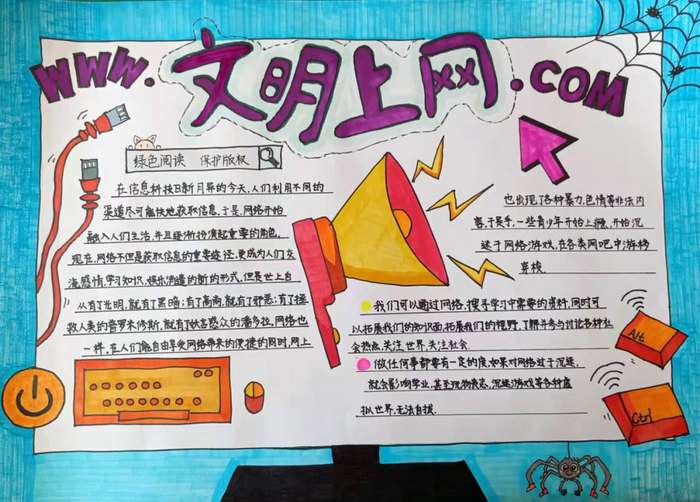 WWW.文明上网.COM
绿色阅读 保护版权
在信息科技日新月异的今天,人们利用不同的
渠道尽可能快地获取信息,于是,网络开始
融入人们生活,并且逐渐扮演起重要的角色。
现在,网络不但是获取信息的重要途径,更成为人们交
流感情,学习知识,娱乐消遣的新的形式,但是世上自
从有了光明,就有了黑暗;有了高尚,就有了邪恶;有了拯
救人类的普罗米修斯,就有了妖言惑众的潘多拉,网络也
一样,在人们能自由享受网络带来的便捷的同时,网上
也出现了各种暴力,色情等非法内
容,于是乎,一些青少年开始上瘾,开始沉
迷于网络游戏,在各类网吧中游移
穿梭.
我们可以通过网络,搜寻学习中需要的资料,同时可
以拓展我们的知识面,拓展我们的视野,了解并参与讨论各种社
会热点,关注世界,关注社会
做任何事都要有一定的度,如果对网络过于沉迷,
就会影响学业,甚至玩物丧志,沉迷游戏等各种虚
拟世界,无法自拔.
Alt
Ctrl